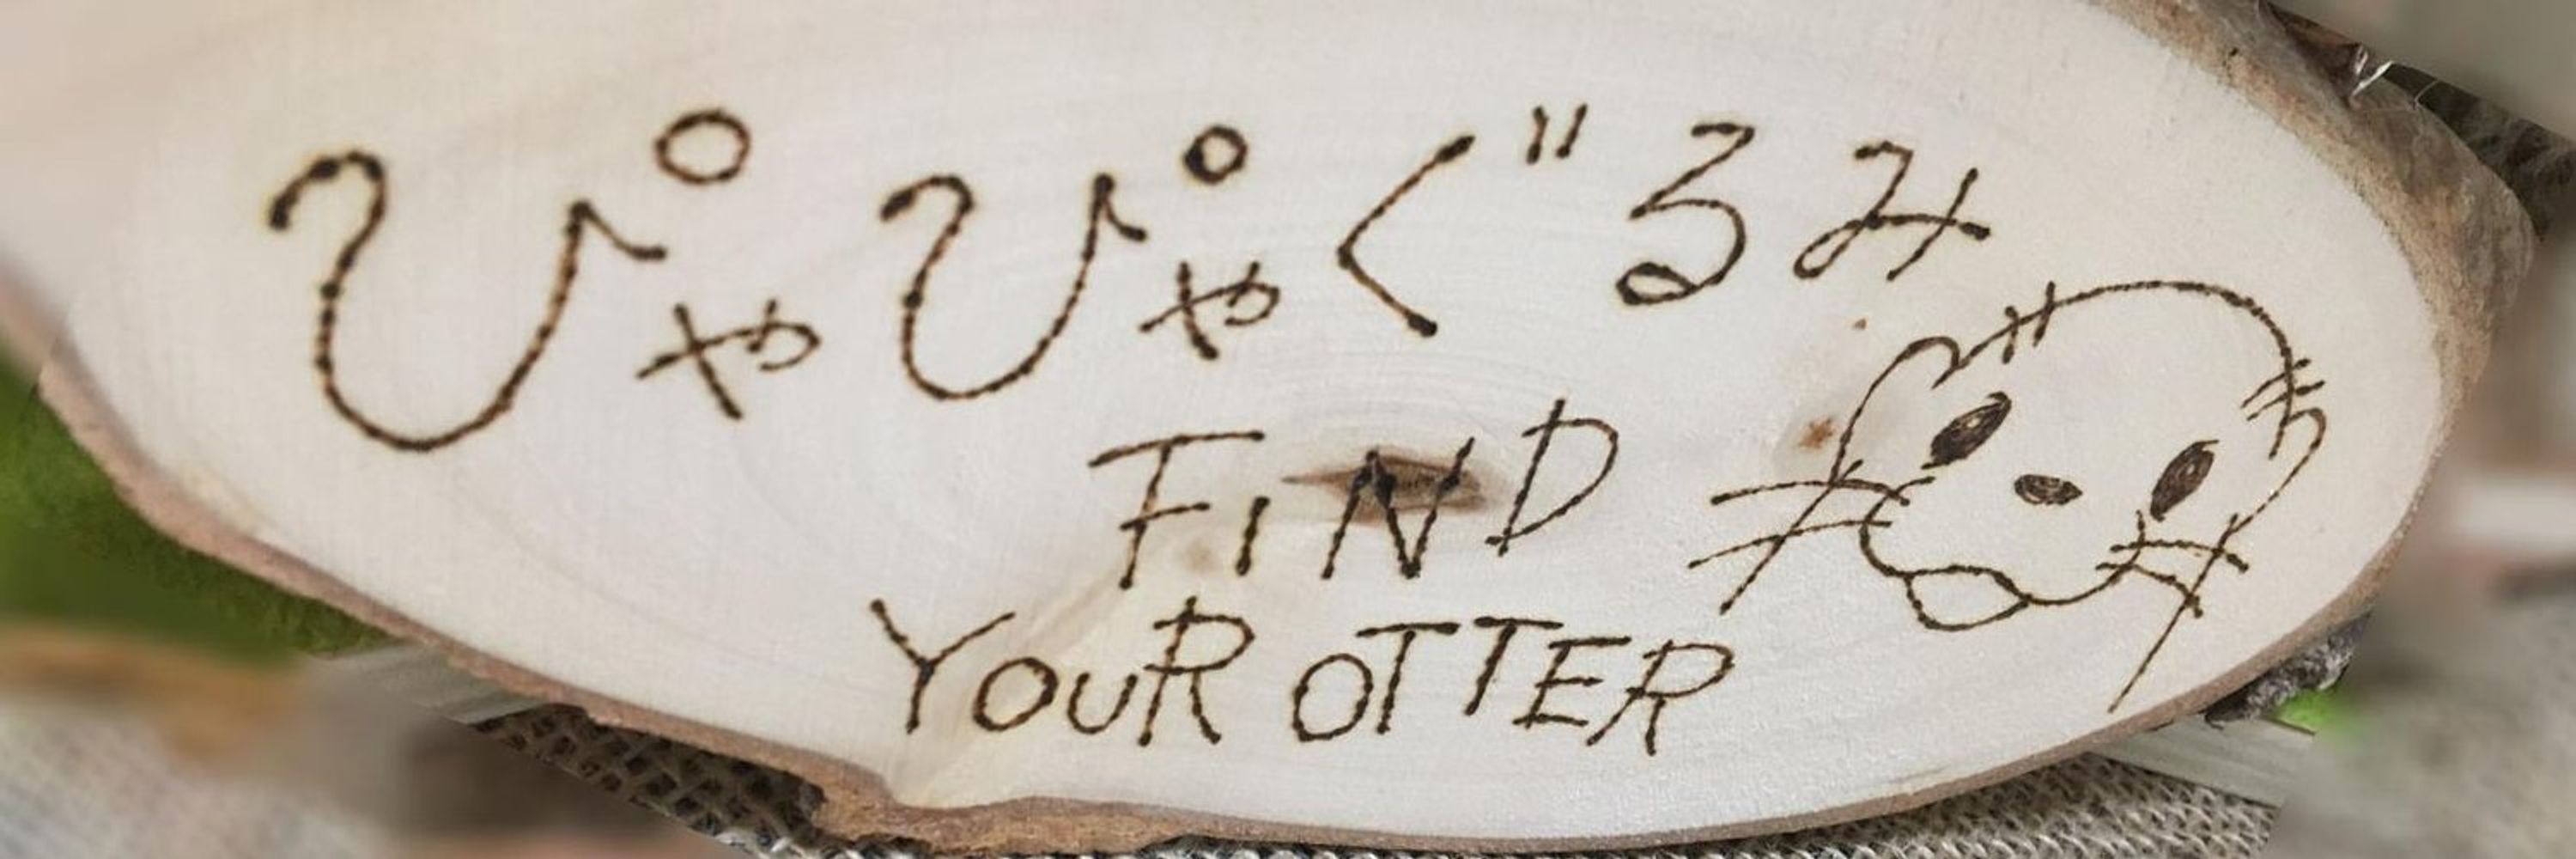 ぴゃぴゃぐるみ
FiND
YOuR OTTER